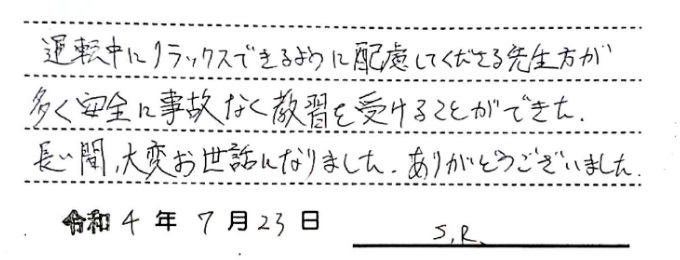 運転中にリラックスできるように配慮してくださる先生方が
多く安全に事故なく教習を受けることができた.
長い間,大変お世話になりました.ありがとうございました.
令和 4 年 7 月 23 日
S.R.